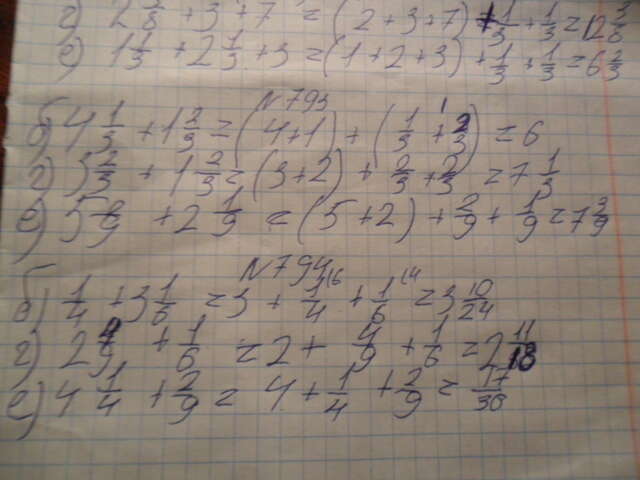 г) 2 2/8 + 3 + 7 = (2+3+7) + 1/3 + 1/3 = 12
е) 1 1/3 + 2 1/3 + 3 = (1+2+3) + 1/3 + 1/3 = 6 2/3
N793
б) 4 1/3 + 1 2/3 = (4+1) + (1/3 + 2/3) = 6
г) 3 2/3 + 1 2/3 = (3+2) + 2/3 + 2/3 = 7 1/3
е) 5 2/9 + 2 1/9 = (5+2) + 2/9 + 1/9 = 7 3/9
N794
б) 1/4 + 3 1/6 = 3 + 1/4 (6 + 1/6 (4 = 3 10/24
г) 2 4/9 + 1/6 = 2 + 4/9 + 1/6 = 2 11/18
е) 4 1/4 + 2/9 = 4 + 1/4 + 2/9 = 17/36